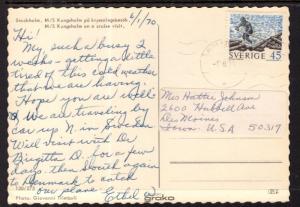 Stockholm, M/S Kungsholm på kryssningsbesök.
M/S Kungsholm on a cruise visit.
6/1/70
Hi!
My, such a busy 2
weeks - getting a little
tired of this cold weather
that we are having.
Hope you are well.
We are traveling by
car up N. in Sweden
Will visit with Dr
Birgitta O. for a few
days. then South again
to Denmark to catch
our plane
Ethel
SVERIGE 45
Miss Hattie Johnson
2600 Hubbell Ave
Des Moines
Iowa, U.S.A 50317
Photo: Giovanni Trimboli
Grako